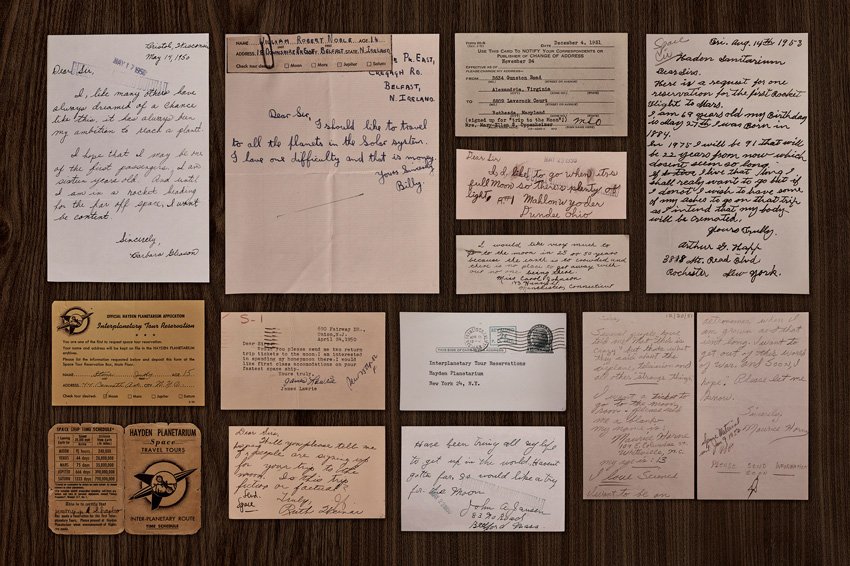 Bristol, Wisconsin
May 14, 1950
Dear Sir,
I, like many others have
always dreamed of a chance
like this, it has always been
my ambition to reach a planet.
I hope that I may be one
of the first passengers, I am
sixteen years old. And until
I am in a rocket heading
for the far off space, I wont
be content.
Sincerely,
Barbara Gleason
NAME William Robert Noble AGE
ADDRESS BELFAST STATE N. IRELAND
Check tour desired: Moon Mars Jupiter Saturn
Pk. East,
Cregagh Rd.
Belfast,
N. Ireland.
Dear Sir,
I should like to travel
to all the planets in the Solar system.
I have one difficulty and that is money.
Yours Sincerely
Billy.
Date December 4, 1951
Use This Card to NOTIFY Your Correspondents or
Publisher of CHANGE OF ADDRESS
November 24
FROM 2424 Gunston Road
Alexandria, Virginia
TO 8809 Laverock Court
Bethesda, Maryland
(signed up for "trip to the Moon")
Mrs. Mary-Ellen S. Oppenheimer
Dear Sir
I'd like to go when it's
full Moon so there's plenty of
light
Mahlon Yoder
Dundee Ohio
I would like very much to
go to the moon in 25 or 50 years
because the earth is to crowded and
there is no place to get away with
out no one being there.
Miss Carol Johnson
Manchester, Connecticut
Fri. Aug. 14th 1953
Haden Sanitarium
Dear Sirs.
There is a request for one
reservation for the first Rocket
flight to Mars.
I am 69 years old my Birthday
is May 27th I was Born in
1884.
In 1975 I will be 91 that will
be 22 years from now which
doesent seem so long.
if I live that long I
shall really want to go but if
I don't I wish to have some
of my ashes to go on that trip
as I intend that my body
will be cremated.
Yours truly.
Arthur G. Happ
Mt. Read Blvd
Rochester New York.
OFFICIAL HAYDEN PLANETARIUM APPLICATION
Interplanetary Tour Reservation
You are one of the first to request space tour reservation.
Your name and address will be kept on file in the HAYDEN PLANETARIUM
archives.
Please fill the information requested below and deposit this form at the
Space Tour Reservation Desk, Main Floor.
NAME Judy AGE 15
ADDRESS N.Y.C.
Check tour desired: Moon Mars Jupiter Saturn
S-1
930 Fairway Dr.,
Union, N.J.
April 24, 1950
Dear Sirs:
Would you please send me two return
trip tickets to the moon. I am interested
in spending my honeymoon there. I would
like first class accomodations on your
fastest space ship.
Yours truly,
James Lawrie
James Lawrie
Interplanetary Tour Reservations
Hayden Planetarium
New York 24, N.Y.
SPACE SHIP TIME SCHEDULE
MOON
MARS
JUPITER
SATURN
HAYDEN PLANETARIUM
Space
TRAVEL TOURS
INTER-PLANETARY ROUTE
TIME SCHEDULE
Dear Sir,
Will you please tell me
if people are signing up
for your trip to the
moon. Is this trip
fiction or factual?
Truly,
Ruth
Have been trying all my life
to get up in the world. Haven't
gotten far. So would like a try
for the Moon
John A. Jansen
Bedford Mass.
Several people have
told me that this is
crazy, but thats what
they said about the
airplane, television and
all other strange things.
I want a ticket to
go to the moon,
please send
me a blank
my name is:
Maurice Horne
Whiteville, N.C.
my age is: 13
I love Science
want to be an
astronomer when I
am grown if that
isn't long. I want to
get out of this world
of war, and soon, I
hope. Please let me
know.
Sincerely
Maurice Horne